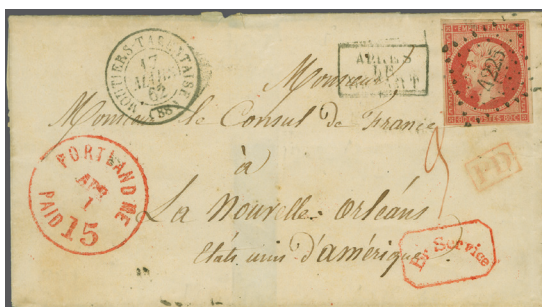 MOUTIERS-TARENTAISE
17
MARS
62
(88)
APRES
LE
DEPART
EMPIRE FRANC
80C POSTES 80C
Monsieur
Monsieur le Consul de France
à
La Nouvelle-Orléans
États unis d'amérique
PORTLAND ME
APR
1
PAID 15
PD
Br. Service